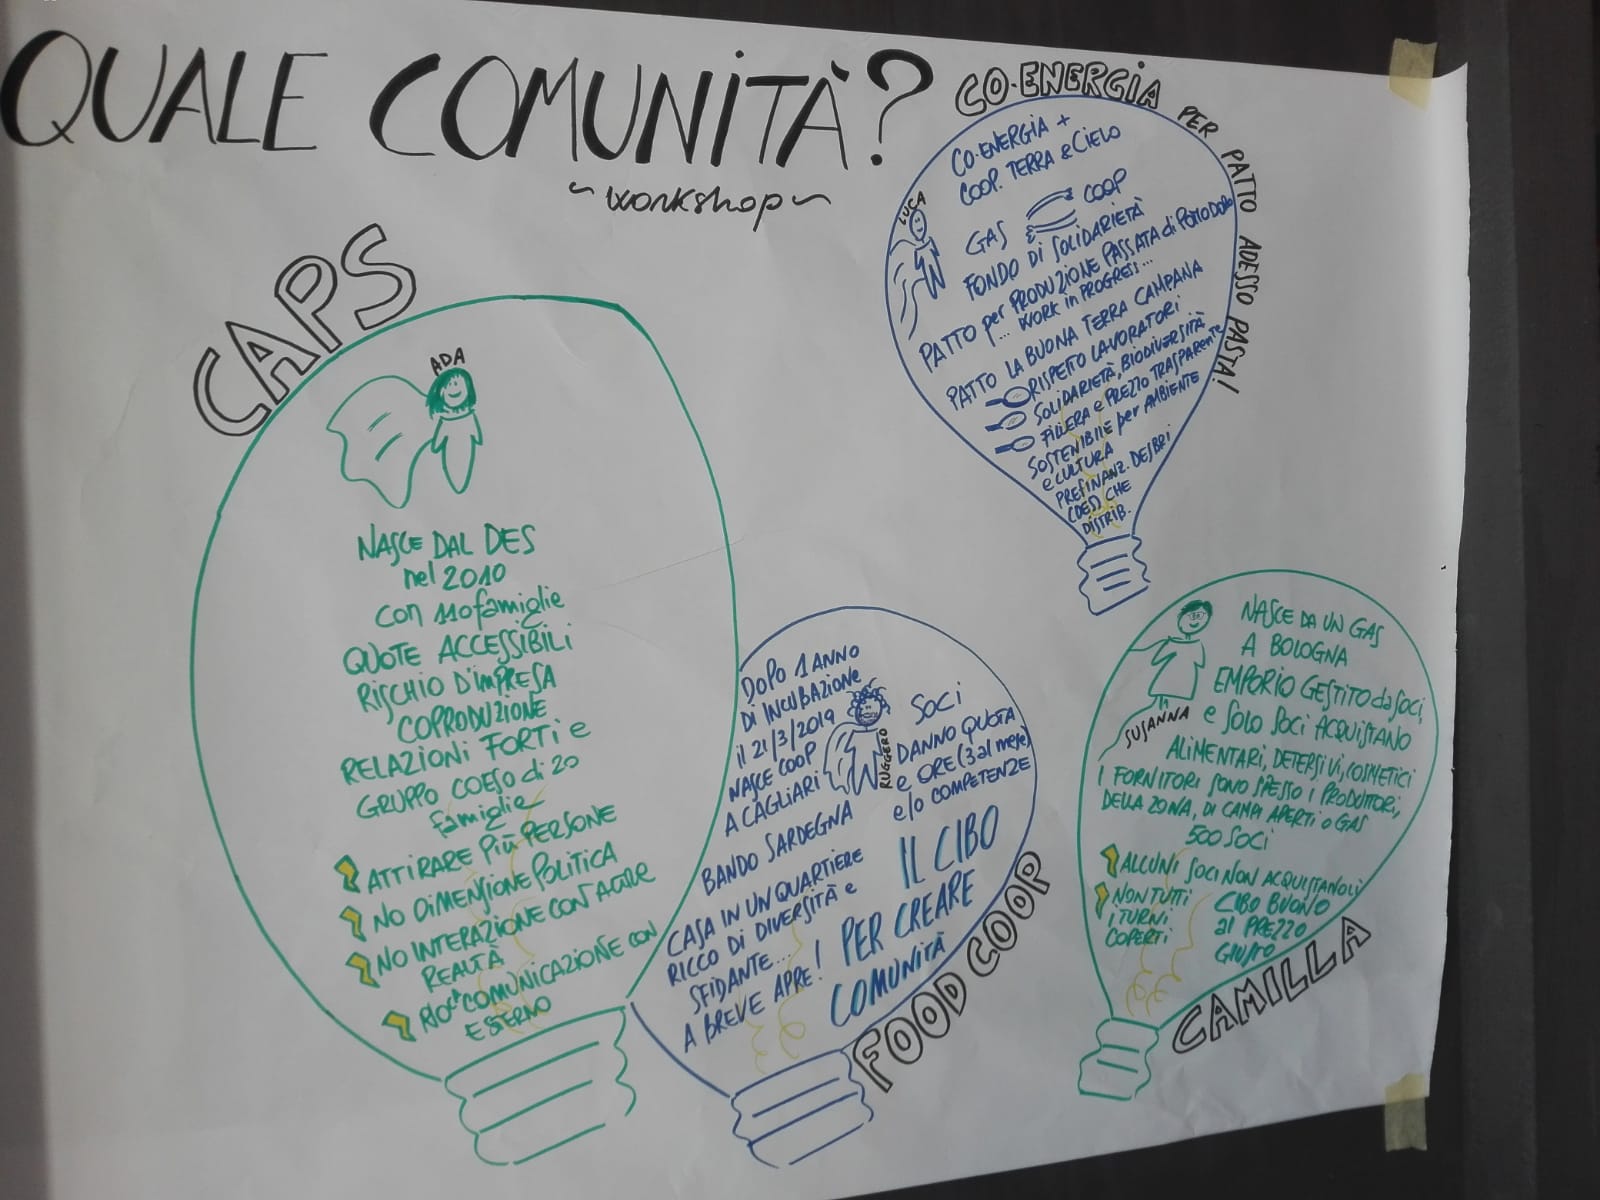 QUALE COMUNITÀ?
~WORKSHOP~
CAPS
ADA
NASCE DAL DES
nel 2010
con 110 famiglie
QUOTE ACCESSIBILI
RISCHIO D'IMPRESA
COPRODUZIONE
RELAZIONI FORTI e
GRUPPO COESO di 20
famiglie
ATTIRARE PIÙ PERSONE
NO DIMENSIONE POLITICA
NO INTERAZIONE CON ALTRE
REALTÀ
COMUNICAZIONE CON
ESTERNO
CO-ENERGIA PER PATTO ADESSO PASTA!
LUCA
CO-ENERGIA +
COOP. TERRA & CIELO
GAS COOP
FONDO DI SOLIDARIETÀ
PATTO per PRODUZIONE PASSATA di POMODORO
... WORK in PROGRESS...
PATTO LA BUONA TERRA CAMPANA
RISPETTO LAVORATORI
SOLIDARIETÀ, BIODIVERSITÀ
FILIERA e PREZZO TRASPARENTE
SOSTENIBILE per AMBIENTE
e CULTURA
PREFINANZ. DESBRI
(DES) CHE
DISTRIB.
DOPO 1 ANNO
DI INCUBAZIONE
il 21/3/2019
NASCE COOP
A CAGLIARI
BANDO SARDEGNA
CASA IN UN QUARTIERE
RICCO DI DIVERSITÀ e
SFIDANTE...
A BREVE APRE!
RUGGERO
SOCI
DANNO QUOTA
e ORE (3 al mese)
e/o COMPETENZE
IL CIBO
PER CREARE
COMUNITÀ
FOOD COOP
SUSANNA
NASCE DA UN GAS
A BOLOGNA
EMPORIO GESTITO da SOCI,
e SOLO SOCI ACQUISTANO
ALIMENTARI, DETERSIVI, COSMETICI
I FORNITORI SONO SPESSO I PRODUTTORI,
DELLA ZONA, DI CAMPI APERTI o GAS
500 SOCI
ALCUNI SOCI NON ACQUISTANO LÌ
NON TUTTI
I TURNI
COPERTI
CIBO BUONO
al PREZZO
GIUSTO
CAMILLA